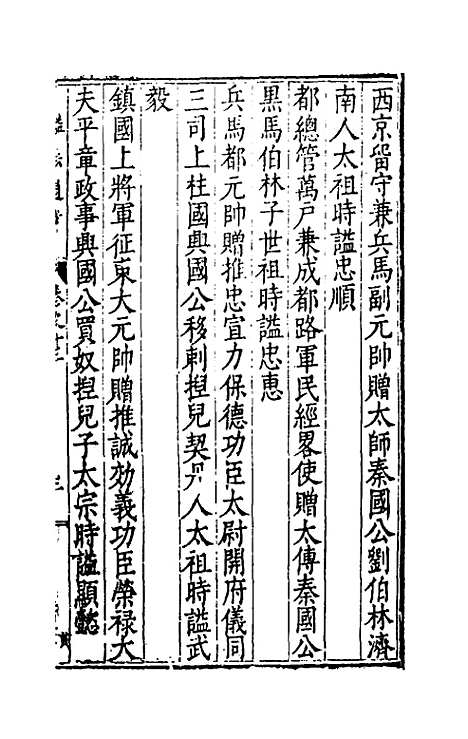 西京留守兼兵馬副元帥贈太師秦國公劉伯林濟
南人太祖時謚忠順
都總管萬戸兼成都路軍民經畧使贈太傳秦國公
黑馬伯林子世祖時謚忠惠
兵馬都元帥贈推忠宣力保德功臣太尉開府儀同
三司上柱國興國公移剌揑兒契丹人太祖時謚武
毅
鎮國上將軍征東大元帥贈推誠効義功臣榮祿大
夫平章政事興國公買奴揑兒子太宗時謚顯懿
謚法通考 卷之十三 三